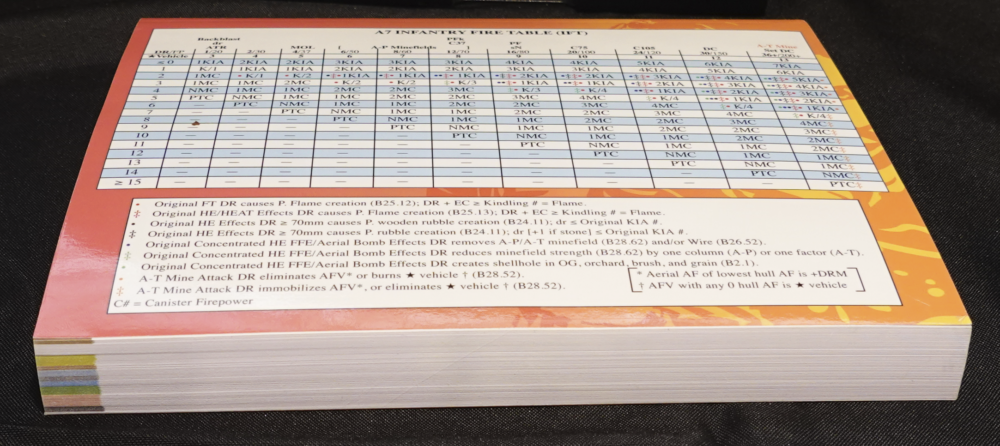 A7 INFANTRY FIRE TABLE (IFT)
Backblast PFk A-T Mine
dr C37 PF Set DC
ATR MOL A-P Minefields sN C75 C105 DC 36+/200+
DR/FT 1/20 2/30 4/37 6/50 8/60 12/70 16/80 20/100 24/120 30/150
★Vehicle
≤ 0 1KIA 2KIA 2KIA 3KIA 3KIA 3KIA 4KIA 4KIA 5KIA 6KIA 7KIA
1 K/1 1KIA 1KIA 2KIA 2KIA 2KIA 3KIA 3KIA 4KIA 5KIA 6KIA
2 1MC K/1 K/2 1KIA 1KIA 1KIA 2KIA 2KIA 3KIA 4KIA 5KIA
3 1MC 1MC 1MC K/2 K/2 K/3 1KIA 1KIA 2KIA 3KIA 4KIA
4 NMC 1MC 1MC 2MC 2MC 3MC K/3 K/4 1KIA 2KIA 3KIA
5 PTC NMC 1MC 1MC 2MC 2MC 3MC 4MC K/4 1KIA 2KIA
6 — PTC NMC 1MC 1MC 2MC 2MC 3MC 4MC K/4 1KIA
7 — — PTC NMC 1MC 1MC 2MC 2MC 3MC 4MC K/4
8 — — — PTC NMC 1MC 1MC 2MC 2MC 3MC 4MC
9 — — — — PTC NMC 1MC 1MC 2MC 2MC 3MC
10 — — — — — PTC NMC 1MC 1MC 2MC 2MC
11 — — — — — — PTC NMC 1MC 1MC 2MC
12 — — — — — — — PTC NMC 1MC 1MC
13 — — — — — — — — PTC NMC 1MC
14 — — — — — — — — — PTC NMC
≥ 15 — — — — — — — — — — PTC
• Original FT DR causes P. Flame creation (B25.12); DR + EC ≥ Kindling # = Flame.
‡ Original HE/HEAT Effects DR causes P. Flame creation (B25.13); DR + EC ≥ Kindling # = Flame.
• Original HE Effects DR ≥ 70mm causes P. wooden rubble creation (B24.11); dr ≤ Original KIA #.
‡ Original HE Effects DR ≥ 70mm causes P. rubble creation (B24.11); dr [+1 if stone] ≤ Original KIA #.
• Original Concentrated HE FFE/Aerial Bomb Effects DR removes A-P/A-T minefield (B28.62) and/or Wire (B26.52).
‡ Original Concentrated HE FFE/Aerial Bomb Effects DR reduces minefield strength (B28.62) by one column (A-P) or one factor (A-T).
• Original Concentrated HE FFE/Aerial Bomb Effects DR creates shellhole in OG, orchard, brush, and grain (B2.1).
• A-T Mine Attack DR eliminates AFV* or burns ★ vehicle † (B28.52).
‡ A-T Mine Attack DR immobilizes AFV*, or eliminates ★ vehicle † (B28.52).
* Aerial AF of lowest hull AF is +DRM
† AFV with any 0 hull AF is ★ vehicle
C# = Canister Firepower